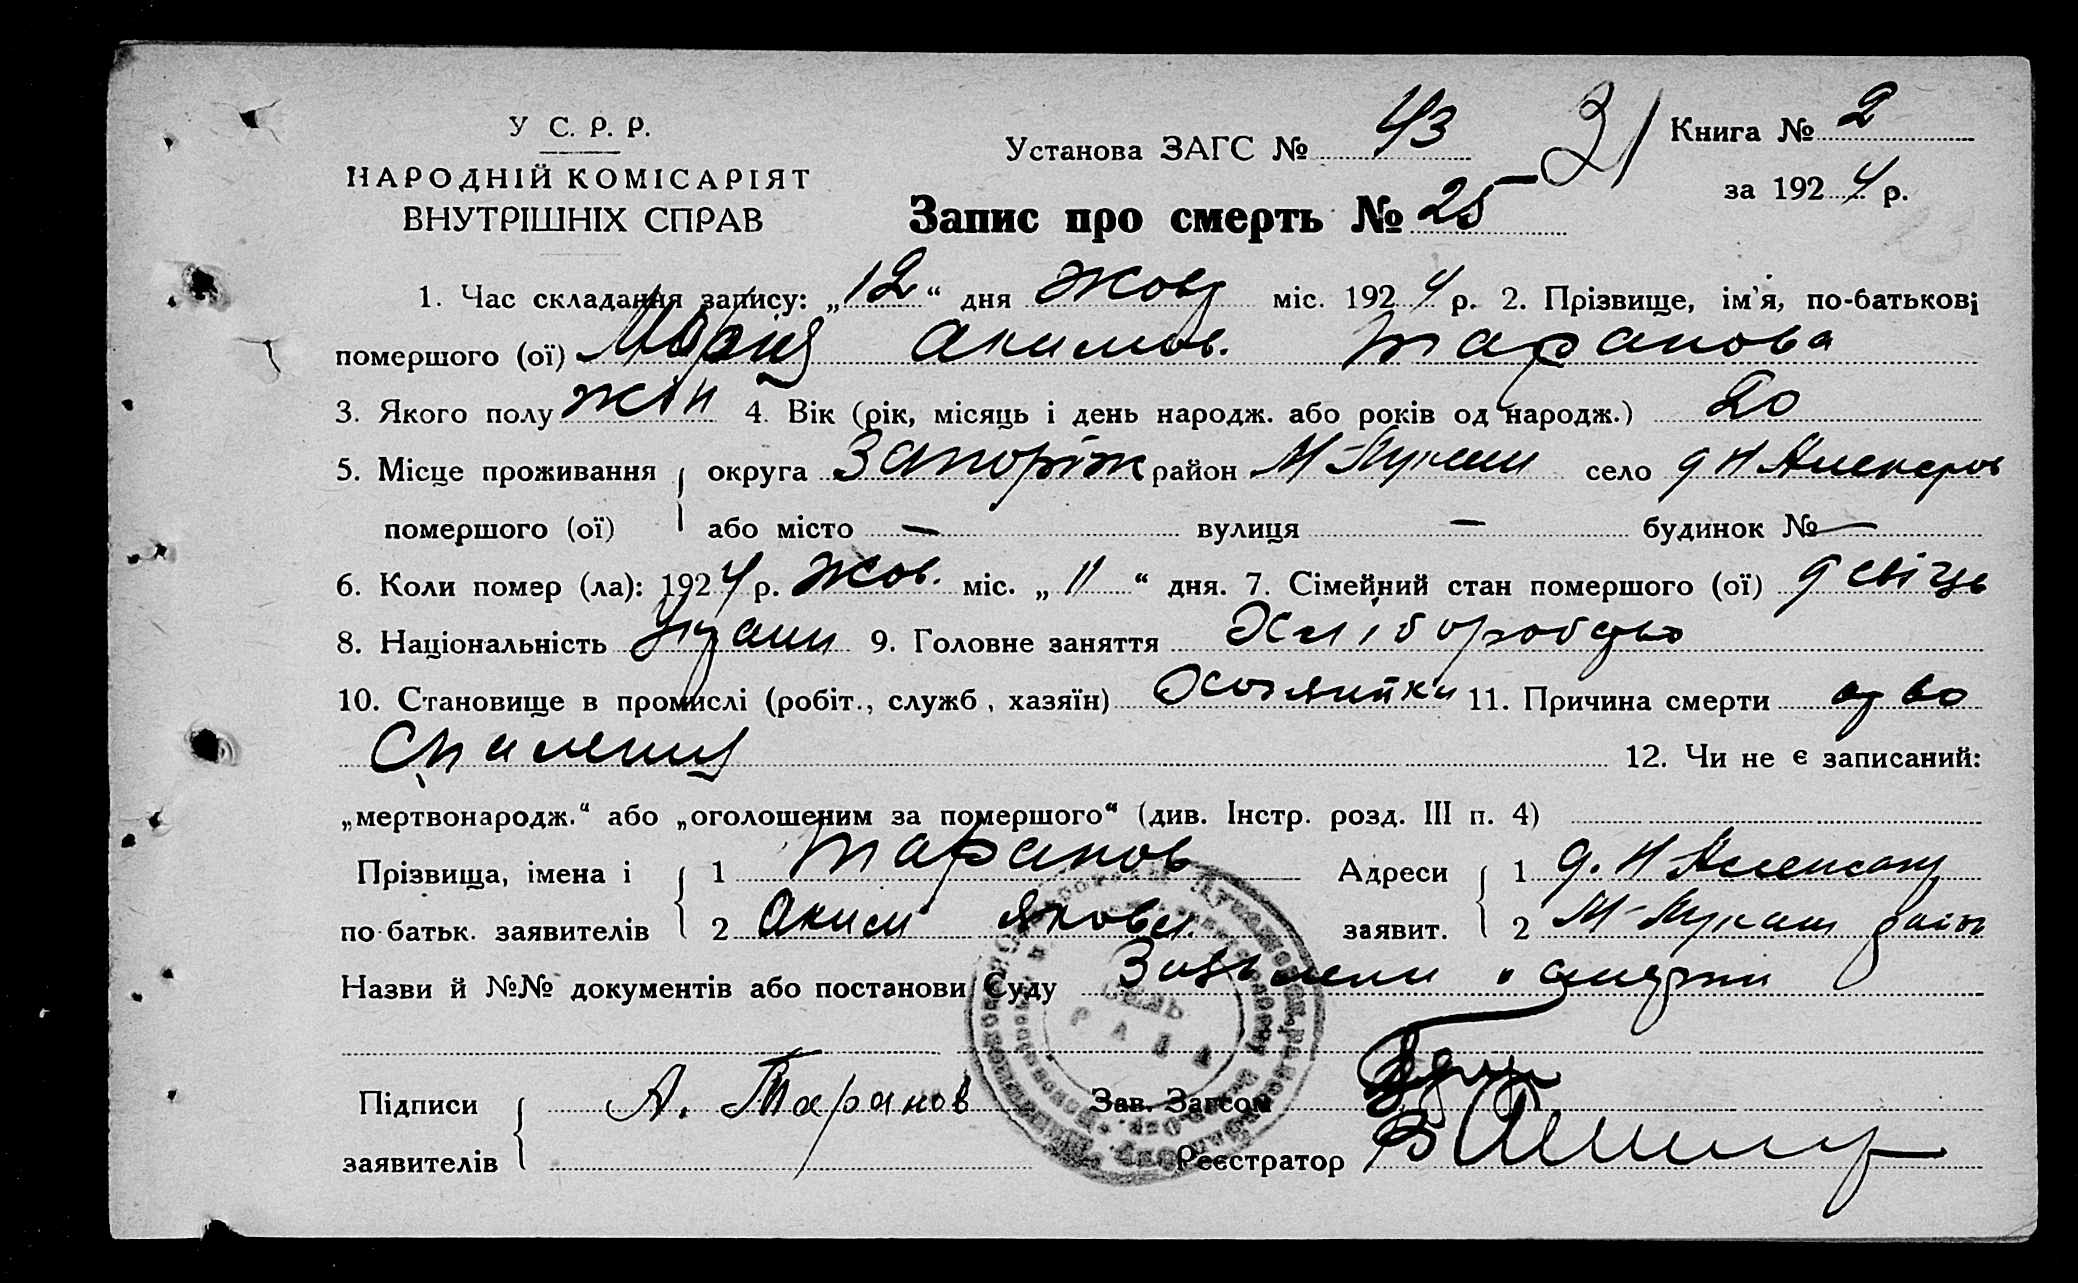 У С. Р. Р.
НАРОДНІЙ КОМІСАРІЯТ
ВНУТРІШНІХ СПРАВ
Установа ЗАГС № 43
31
Книга № 2
за 1924 р.
Запис про смерть № 25
1. Час складання запису: „12“ дня Жовт міс. 1924 р. 2. Прізвище, ім'я, по-батькові
помершого (ої) Марія Акимов. Таранова
3. Якого полу жін 4. Вік (рік, місяць і день народж. або років од народж.) 20
5. Місце проживання округа Запоріж район М-Лукаш село д Н Александров
помершого (ої) або місто — вулиця — будинок № —
6. Коли помер (ла): 1924 р. Жов. міс. „11“ дня. 7. Сімейний стан помершого (ої)
8. Національність 9. Головне заняття Хліборобство
10. Становище в промислі (робіт., служб, хазяїн) 11. Причина смерти од во
спалення
12. Чи не є записаний:
„мертвонародж.“ або „оголошеним за помершого“ (див. Інстр. розд. III п. 4)
Прізвища, імена і 1 Таранов Адреси 1 д. Н Александ
по-батьк. заявителів 2 Аким Яковл. заявит. 2 М-Лукаш район
Назви й №№ документів або постанови Суду
Підписи А. Таранов Зав. Загсом
заявителів Реєстратор
РАДА